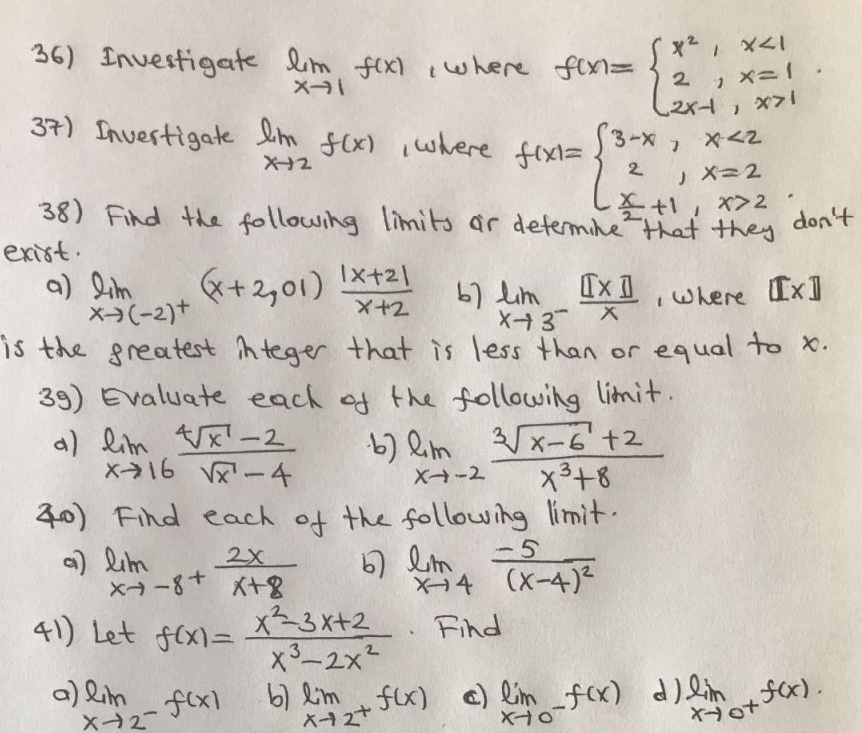 36) Investigate lim x→1 f(x), where f(x)= { x², x<1
2, x=1 .
2x-1, x>1
37) Investigate lim x→2 f(x), where f(x)= { 3-x, x<2
2, x=2
x/2 +1, x>2 .
38) Find the following limits or determine that they don't
exist.
a) lim x→(-2)⁺ (x+2,01) |x+2| / x+2 b) lim x→3⁻ ⟦x⟧ / x, where ⟦x⟧
is the greatest integer that is less than or equal to x.
39) Evaluate each of the following limit.
a) lim x→16 (⁴√x - 2) / (√x - 4) b) lim x→-2 (³√(x-6) + 2) / (x³+8)
40) Find each of the following limit.
a) lim x→-8⁺ 2x / (x+8) b) lim x→4 -5 / (x-4)²
41) Let f(x)= (x²-3x+2) / (x³-2x²) . Find
a) lim x→2⁻ f(x) b) lim x→2⁺ f(x) c) lim x→0⁻ f(x) d) lim x→0⁺ f(x).